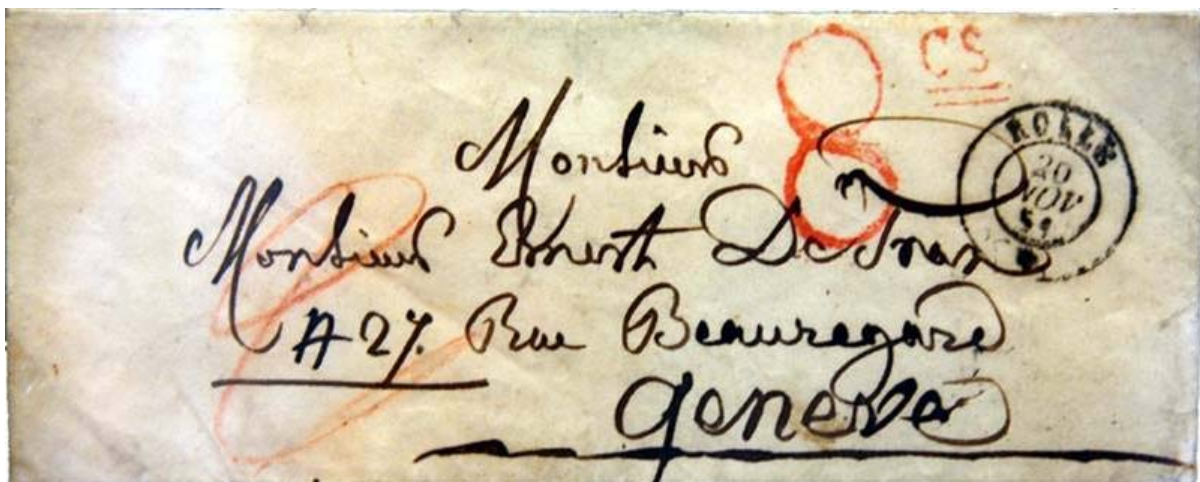 8 CS
ROLLE
20
NOV
Monsieur
Monsieur Ernest De Traz
# 27. Rue Beauregard
Genève